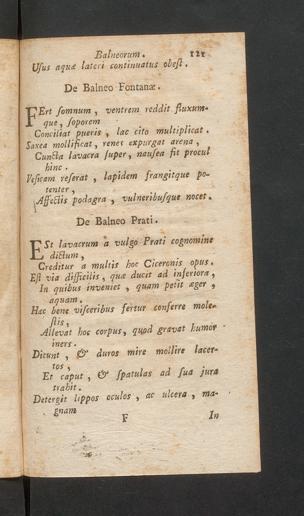 Balneorum. 121
Usus aquæ lateri continuatus obest.
De Balneo Fontanæ.
FErt somnum, ventrem reddit fluxum-
que, soporem
Conciliat pueris, lac cito multiplicat.
Saxea mollificat, renes expurgat arena,
Cuncta lavacra super, nausea fit procul
hinc.
Vesicam reserat, lapidem frangitque po-
tenter,
Affectis podagra, vulneribusque nocet.
De Balneo Prati.
ESt lavacrum a vulgo Prati cognomine
dictum,
Creditur a multis hoc Ciceronis opus.
Est via difficilis, quæ ducit ad inferiora,
In quibus invenies, quam petit æger,
aquam.
Hæc bene visceribus fertur conferre mole-
stis,
Allevat hoc corpus, quod gravat humor
iners.
Dicunt, & duros mire mollire lacer-
tos,
Et caput, & spatulas ad sua jura
trahit.
Detergit lippos oculos, ac ulcera, ma-
gnam
F In